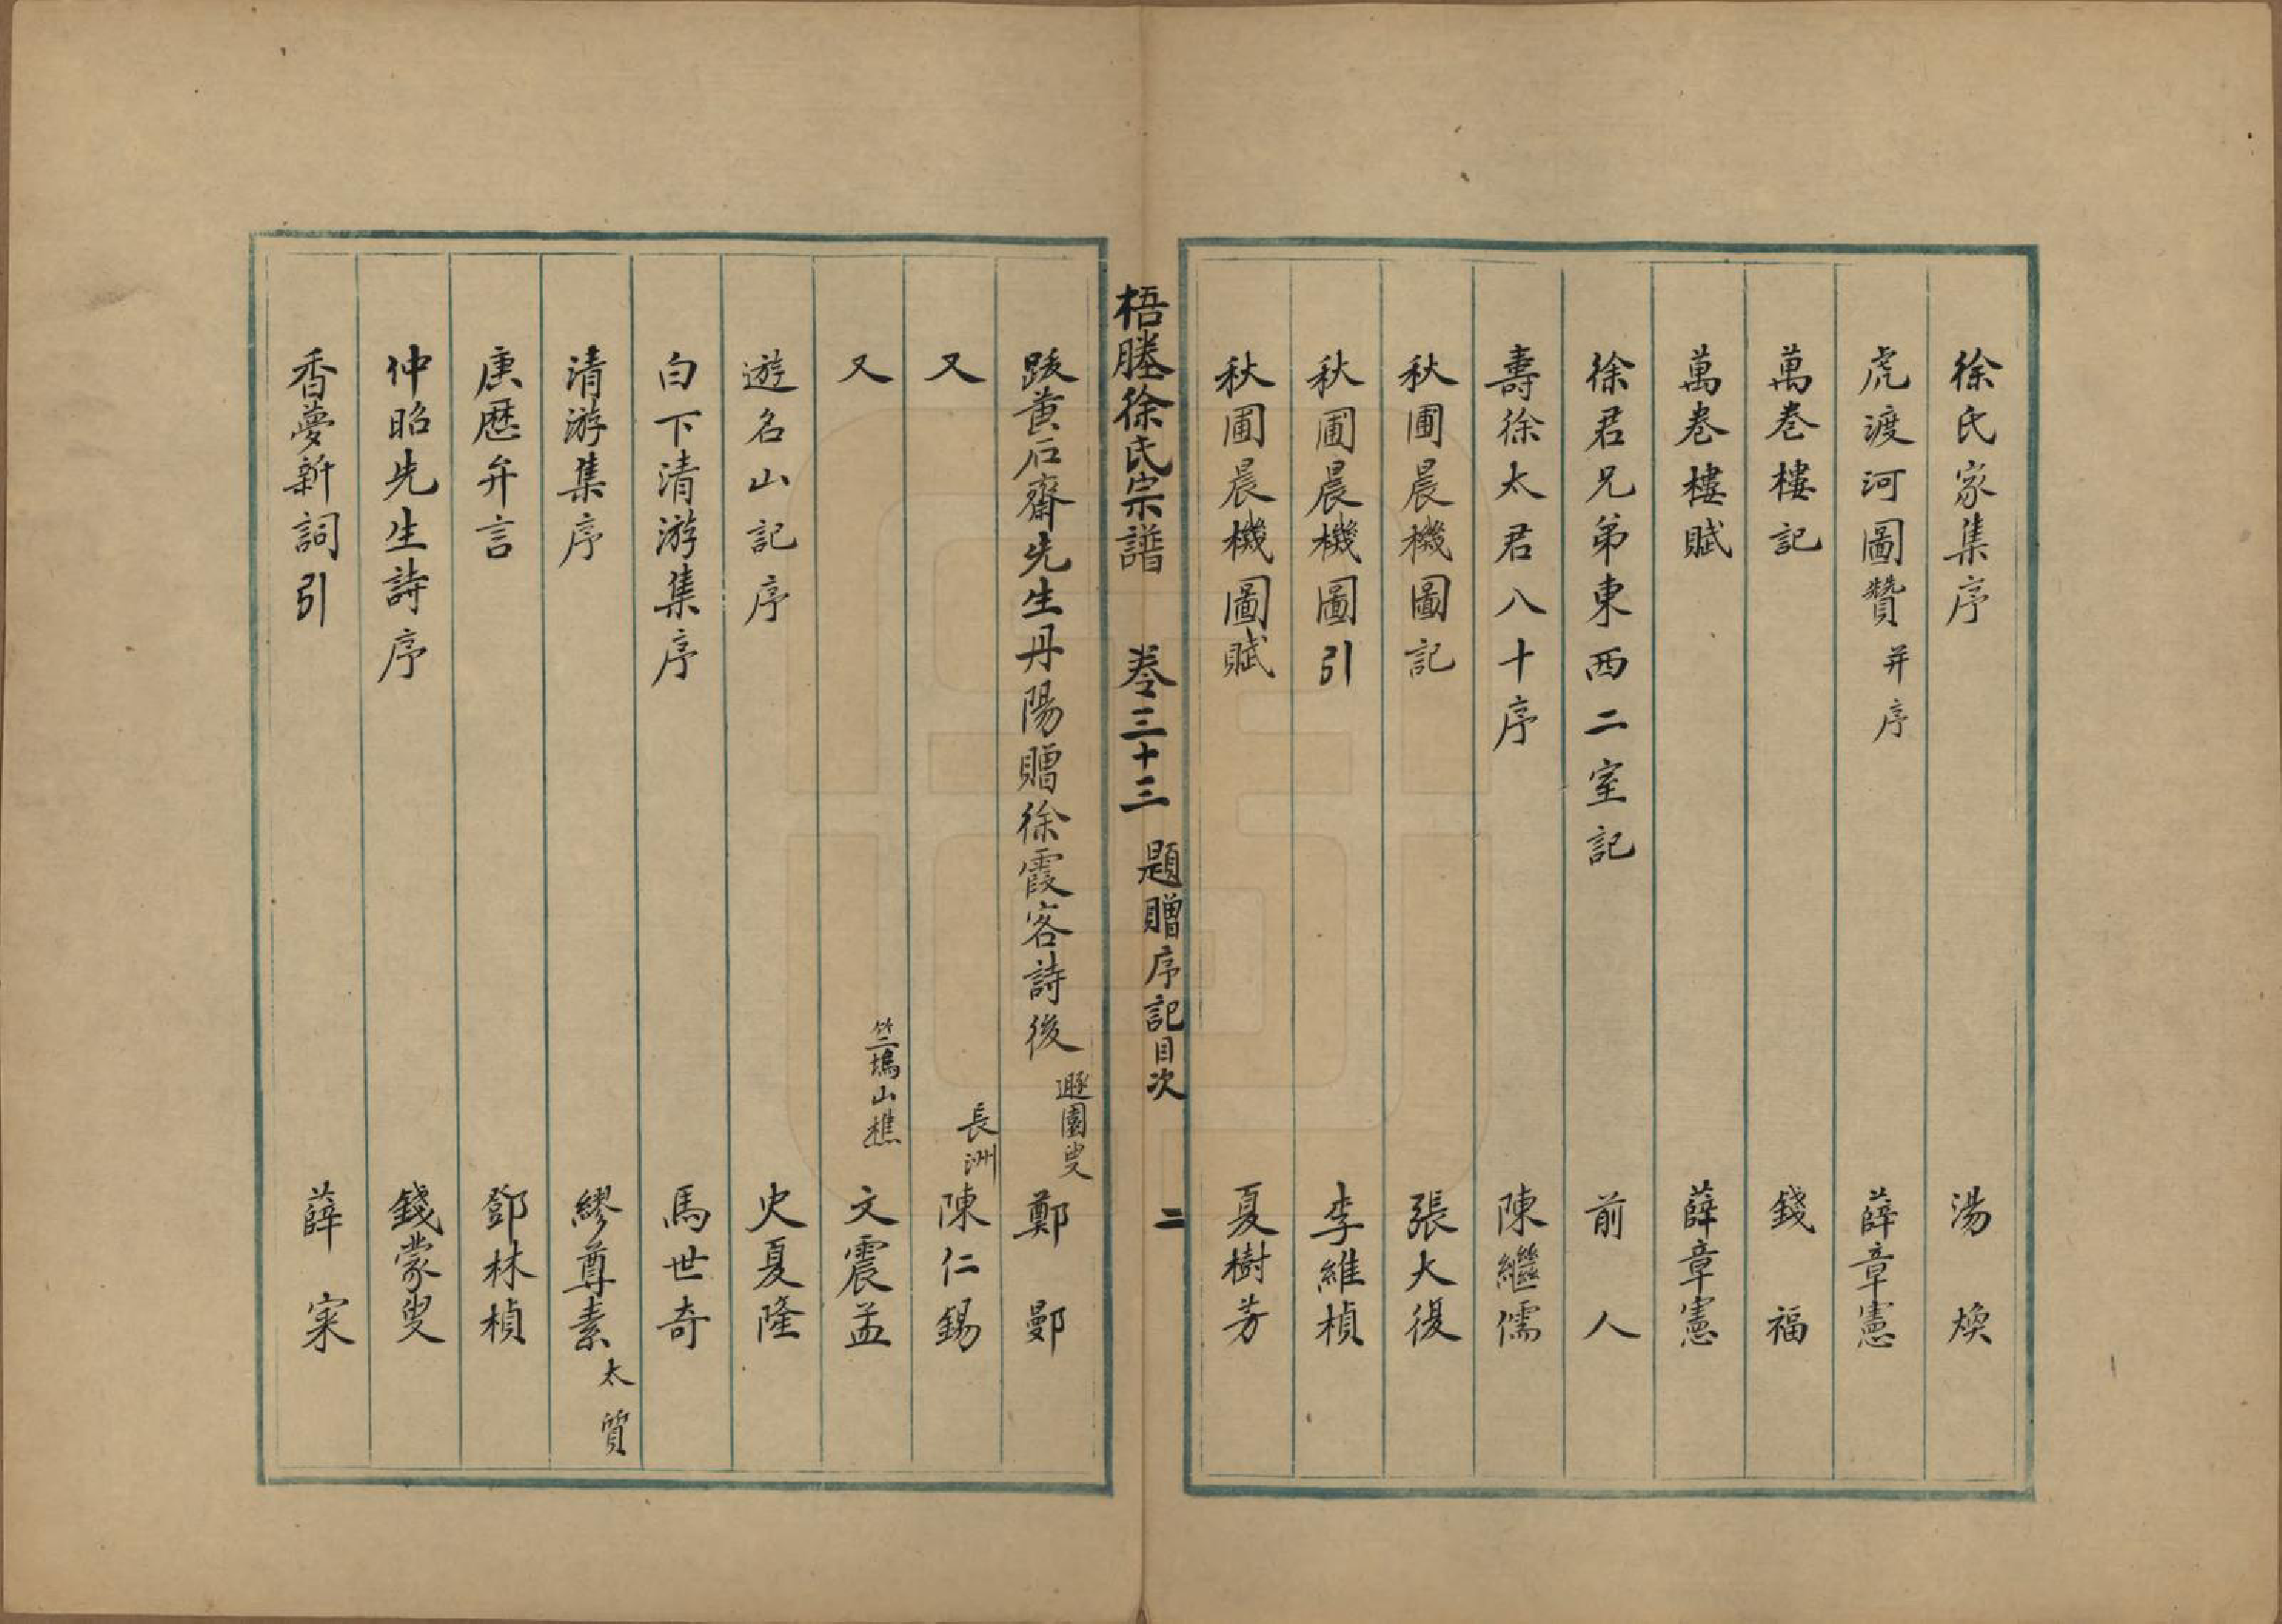 徐氏家集序 湯煥
虎渡河圖贊 并序 薛章憲
萬卷樓記 錢福
萬卷樓賦 薛章憲
徐君兄弟東西二室記 前人
壽徐太君八十序 陳繼儒
秋圃晨機圖記 張大復
秋圃晨機圖引 李維楨
秋圃晨機圖賦 夏樹芳
梧塍徐氏宗譜 卷三十三 題贈序記目次 二
跋黃石齋先生丹陽贈徐霞客詩後 遯園叟 鄭鄤
又 長洲 陳仁錫
又 竺塢山樵 文震孟
遊名山記序 史夏隆
白下清游集序 馬世奇
清游集序 繆尊素 太質
庚歷弁言 鄧林楨
仲昭先生詩序 錢蒙叟
香夢新詞引 薛寀